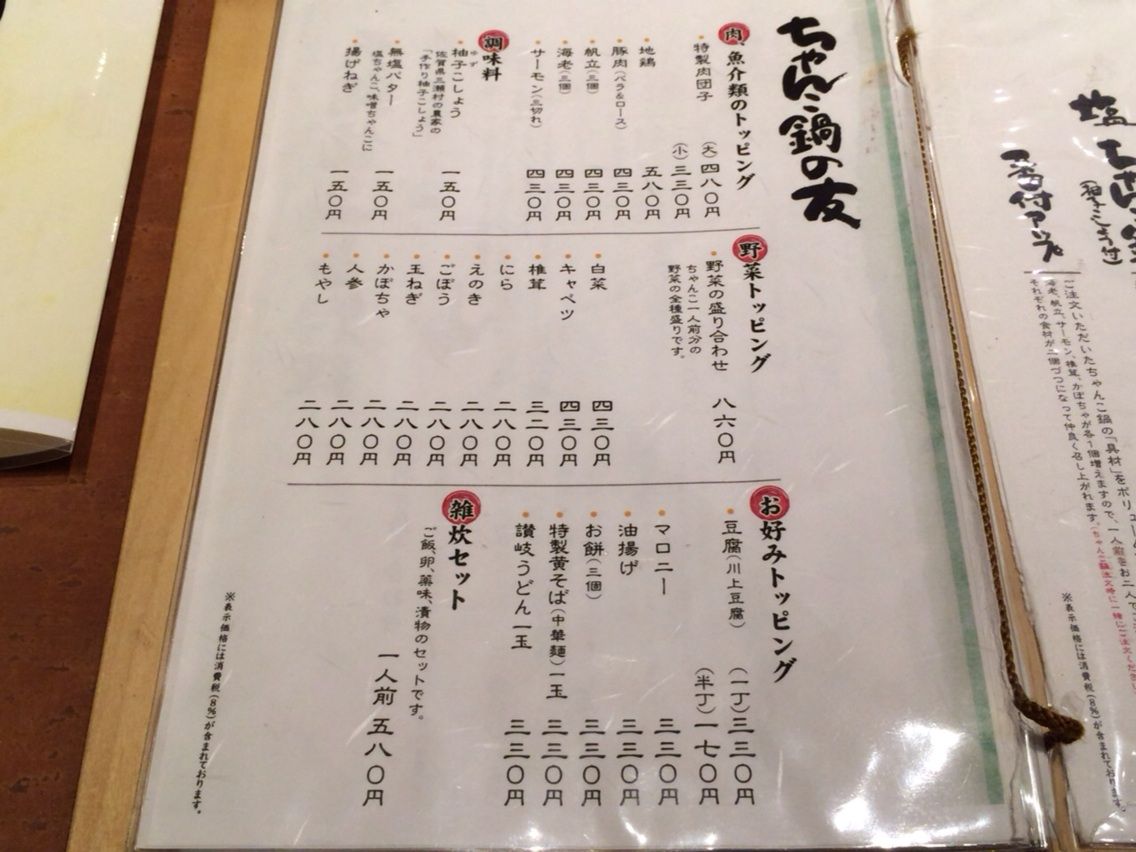 塩ちゃんこ鍋
(柚子こしょう付)
番付アップ
ご注文いただいたちゃんこ鍋の「具材」をボリューム
海老、帆立、サーモン、椎茸、かぼちゃが各1個増えますので、一人前をお二人で
それぞれの食材が二個づつになって仲良く召し上がれます。(ちゃんこ鍋注文時に一緒にご注文ください
ちゃんこ鍋の友
肉、魚介類のトッピング
・特製肉団子 (大)四八〇円
(小)三三〇円
・地鶏 五八〇円
・豚肉(バラ&ロース) 四三〇円
・帆立(三個) 四三〇円
・海老(三個) 四三〇円
・サーモン(三切れ) 四三〇円
調味料
・柚子こしょう 一五〇円
ゆず
佐賀県三瀬村の農家の
「手作り柚子こしょう」
・無塩バター 一五〇円
塩ちゃんこ、味噌ちゃんこに
・揚げねぎ 一五〇円
野菜トッピング
・野菜の盛り合わせ 八六〇円
ちゃんこ一人前分の
野菜の全種盛りです。
・白菜 四三〇円
・キャベツ 四三〇円
・椎茸 三二〇円
・にら 二八〇円
・えのき 二八〇円
・ごぼう 二八〇円
・玉ねぎ 二八〇円
・かぼちゃ 二八〇円
・人参 二八〇円
・もやし 二八〇円
お好みトッピング
・豆腐(川上豆腐) (一丁)三三〇円
(半丁)一七〇円
・マロニー 三三〇円
・油揚げ 三三〇円
・お餅(三個) 三三〇円
・特製黄そば(中華麺)一玉 三三〇円
・讃岐うどん一玉 三三〇円
雑炊セット
ご飯、卵、薬味、漬物のセットです。
一人前 五八〇円
※表示価格には消費税(8%)が含まれております。
※表示価格には消費税(8%)が含まれております。